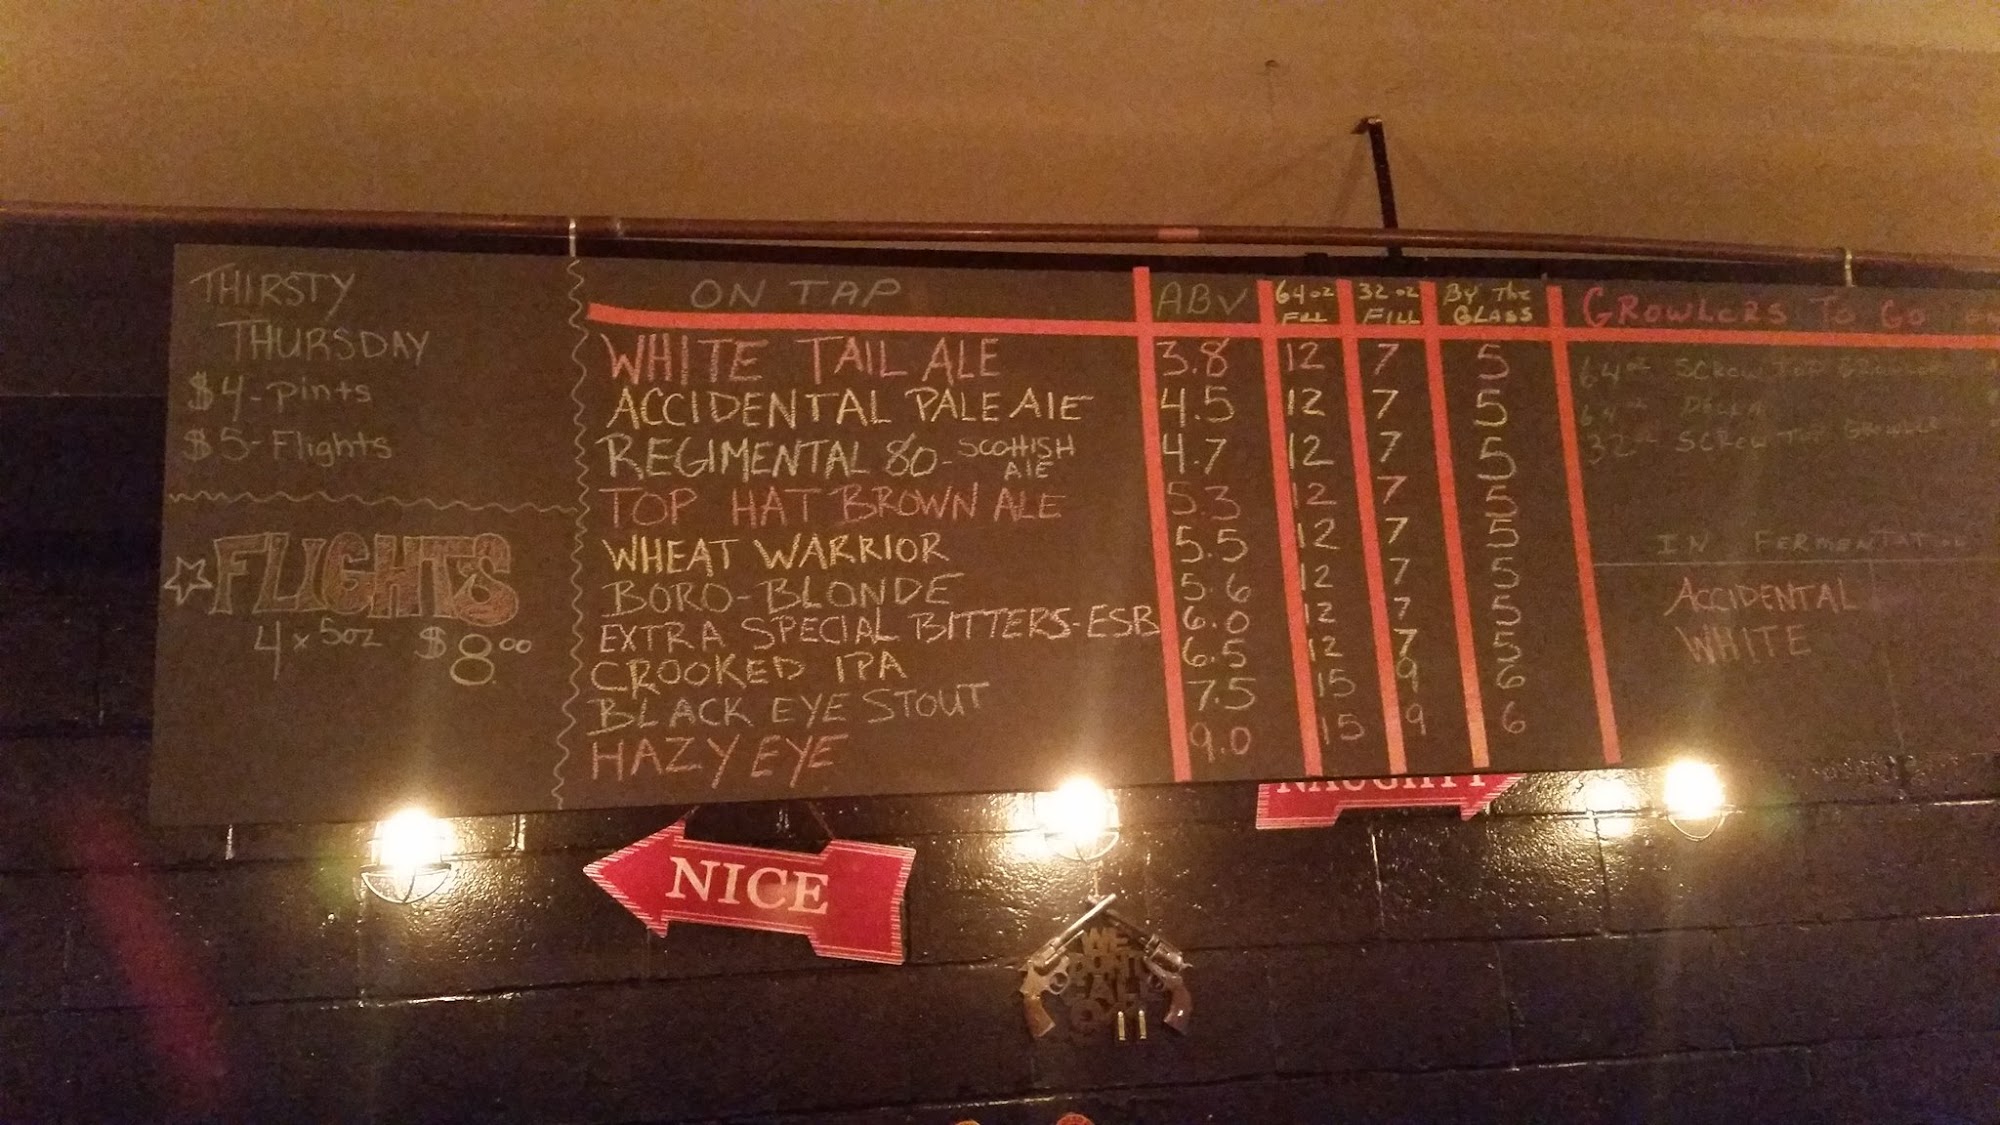 THIRSTY
THURSDAY
$4-pints
$5-Flights
FLIGHTS
4 x 5oz $8.00
ON TAP ABV 64oz FILL 32oz FILL BY The GLASS
WHITE TAIL ALE 3.8 12 7 5
ACCIDENTAL PALE AlE 4.5 12 7 5
REGIMENTAL 80- SCOTTISH AlE 4.7 12 7 5
TOP HAT BROWN ALE 5.3 12 7 5
WHEAT WARRIOR 5.5 12 7 5
BORO-BLONDE 5.6 12 7 5
EXTRA SPECIAL BITTERS-ESB 6.0 12 7 5
CROOKED IPA 6.5 12 7 5
BLACK EYE STOUT 7.5 15 9 6
HAZY EYE 9.0 15 9 6
GROWLERS TO GO
64oz SCREW TOP GROWLER
64oz
32oz SCREW TOP GROWLER
IN FERMENTATION
ACCIDENTAL
WHITE
NICE
NAUGHTY
WE
DON'T
CALL
911